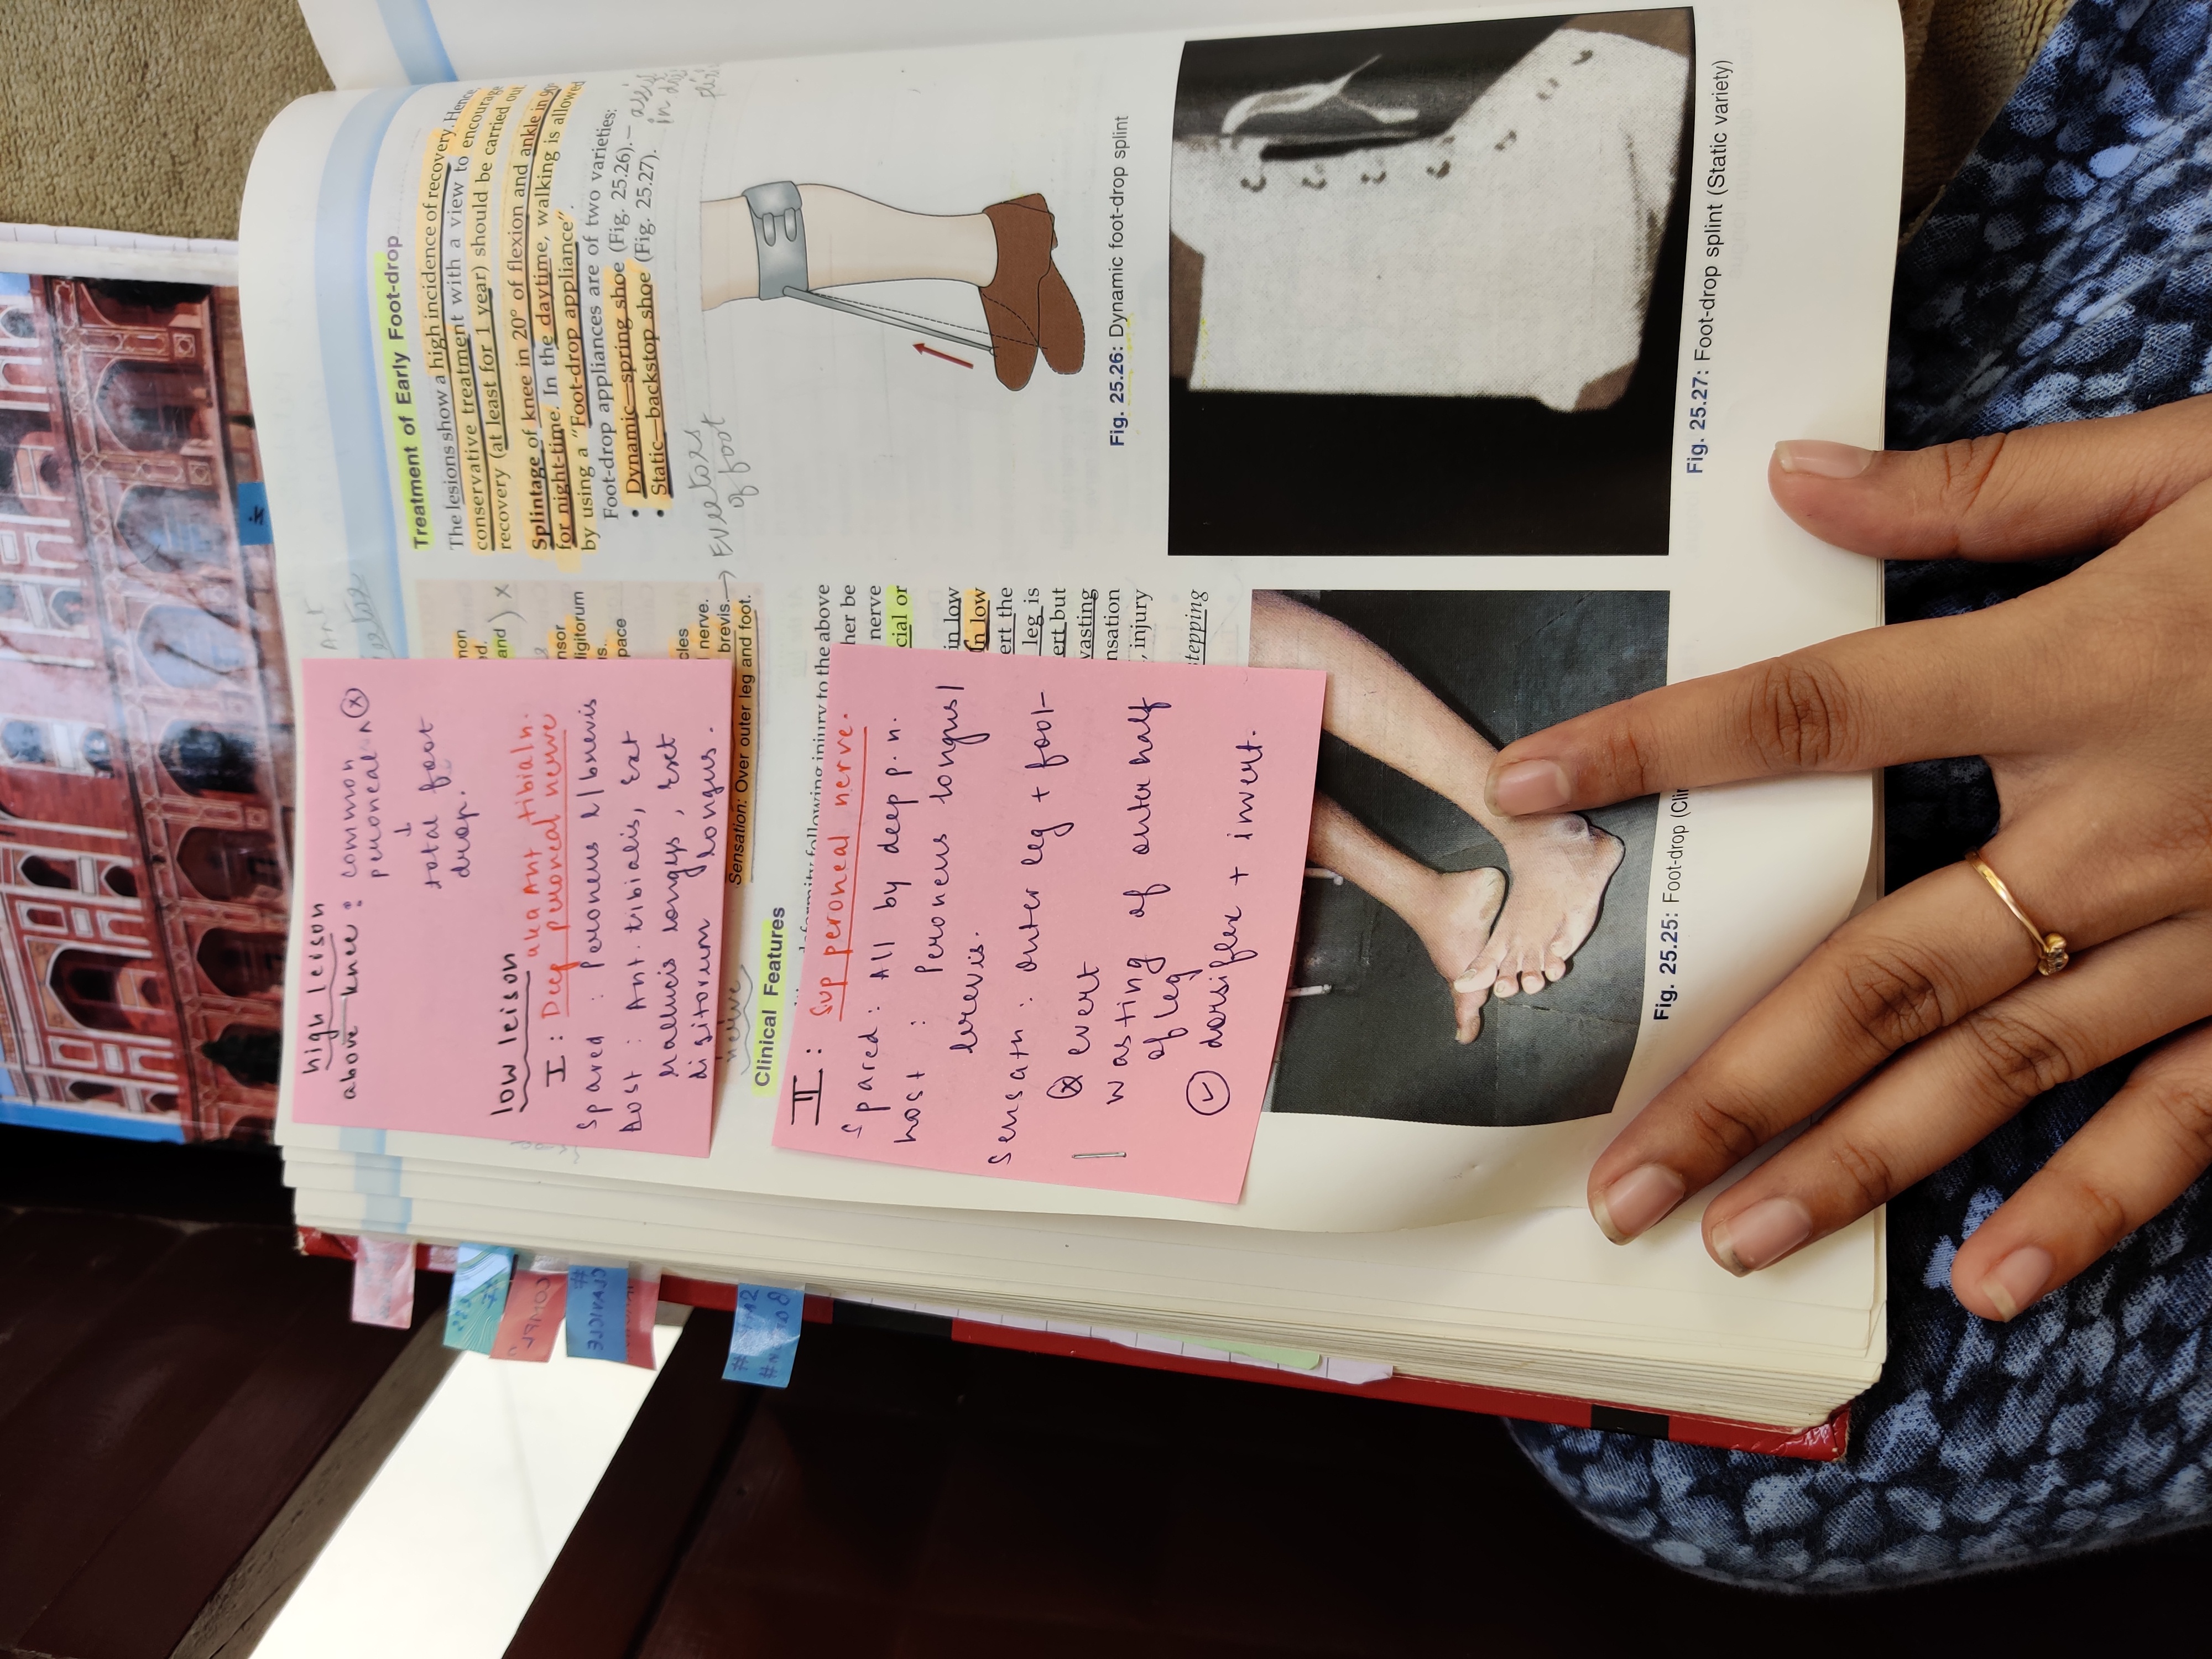 high leison
above knee : common
peroneal n ⓧ
↓
total foot
drop.
low leison
aka Ant tibial n.
I : Deep peroneal nerve
Spared : Peroneus l/brevis
Lost : Ant. tibialis, Ext
Hallucis longus, Ext
digitoreum longus.
mon
and) x
nsor
digitorum
s.
pace
cles
nerve.
brevis. → Evertors
of foot
Sensation: Over outer leg and foot.
nerve
Clinical Features
deformity following injury to the above
her be
nerve
cial or
in low
n low
ert the
leg is
ert but
vasting
nsation
, injury
stepping
II :
Sup peroneal nerve.
Spared : All by deep p. n.
Lost : Peroneus longus/
brevis.
Sensath : outer leg + foot
ⓧ evert
wasting of outer half
of leg
✓ dorsiflex + invert.
Fig. 25.25: Foot-drop (Clin
Treatment of Early Foot-drop
The lesions show a high incidence of recovery. Hence
conservative treatment with a view to encourage
recovery (at least for 1 year) should be carried out
Splintage of knee in 20° of flexion and ankle in 90°
for night-time. In the daytime, walking is allowed
by using a "Foot-drop appliance".
Foot-drop appliances are of two varieties:
• Dynamic—spring shoe (Fig. 25.26). –
• Static—backstop shoe (Fig. 25.27).
Fig. 25.26: Dynamic foot-drop splint
Fig. 25.27: Foot-drop splint (Static variety)
CLAVICLE